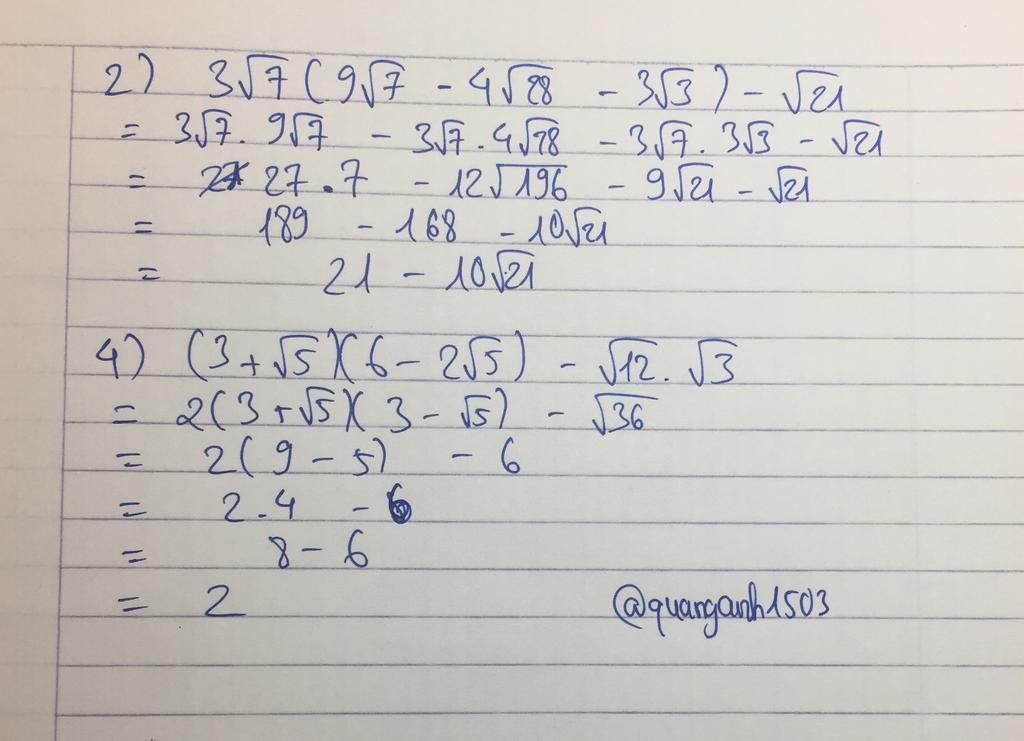 2) 3√7 (9√7 - 4√28 - 3√3) - √21
= 3√7. 9√7 - 3√7.4√28 - 3√7. 3√3 - √21
= 27.7 - 12√196 - 9√21 - √21
= 189 - 168 - 10√21
= 21 - 10√21
4) (3+√5)(6 - 2√5) - √12. √3
= 2(3+√5)(3-√5) - √36
= 2(9-5) - 6
= 2.4 - 6
= 8 - 6
= 2
@quanganh1503